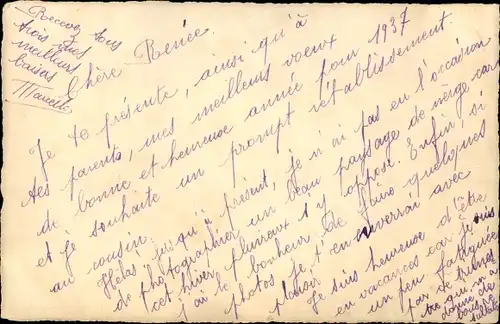 Recevez tous
trois mes
meilleurs
baisers
Marcelle
Chère Renée.
Je te présente, ainsi qu'à
tes parents, mes meilleurs voeux
de bonne et heureuse année pour 1937
et je souhaite un prompt rétablissement
au cousin.
Hélas! jusqu'à présent, je n'ai pas eu l'occasion
de photographier un beau paysage de neige car
cet hiver pluvieux s'y oppose. Enfin si
j'ai le bonheur de faire quelques
photos je t'en enverrai avec
plaisir.
Je suis heureuse d'être
en vacances car je suis
un peu fatiguée
par le trimes
tre qui
donne de
bons